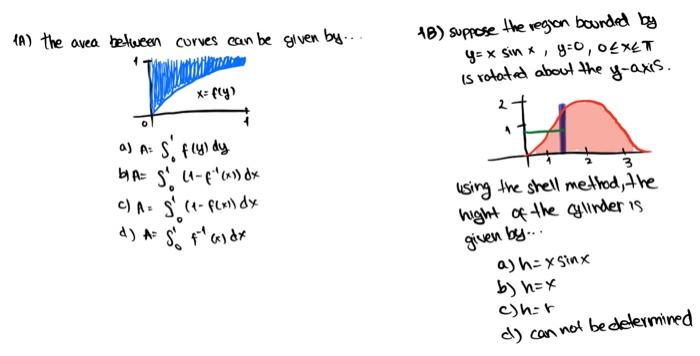 1A) the area between curves can be given by...
1
x=f(y)
0
1
a) A= ∫₀¹ f(y) dy
b) A= ∫₀¹ (1-f⁻¹(x)) dx
c) A= ∫₀¹ (1-f(x)) dx
d) A= ∫₀¹ f⁻¹(x) dx
1B) suppose the region bounded by
y=x sin x, y=0, 0≤x≤π
is rotated about the y-axis.
2
1
1 2 3
using the shell method, the
hight of the cylinder is
given by...
a) h=x sin x
b) h=x
c) h=r
d) can not be determined